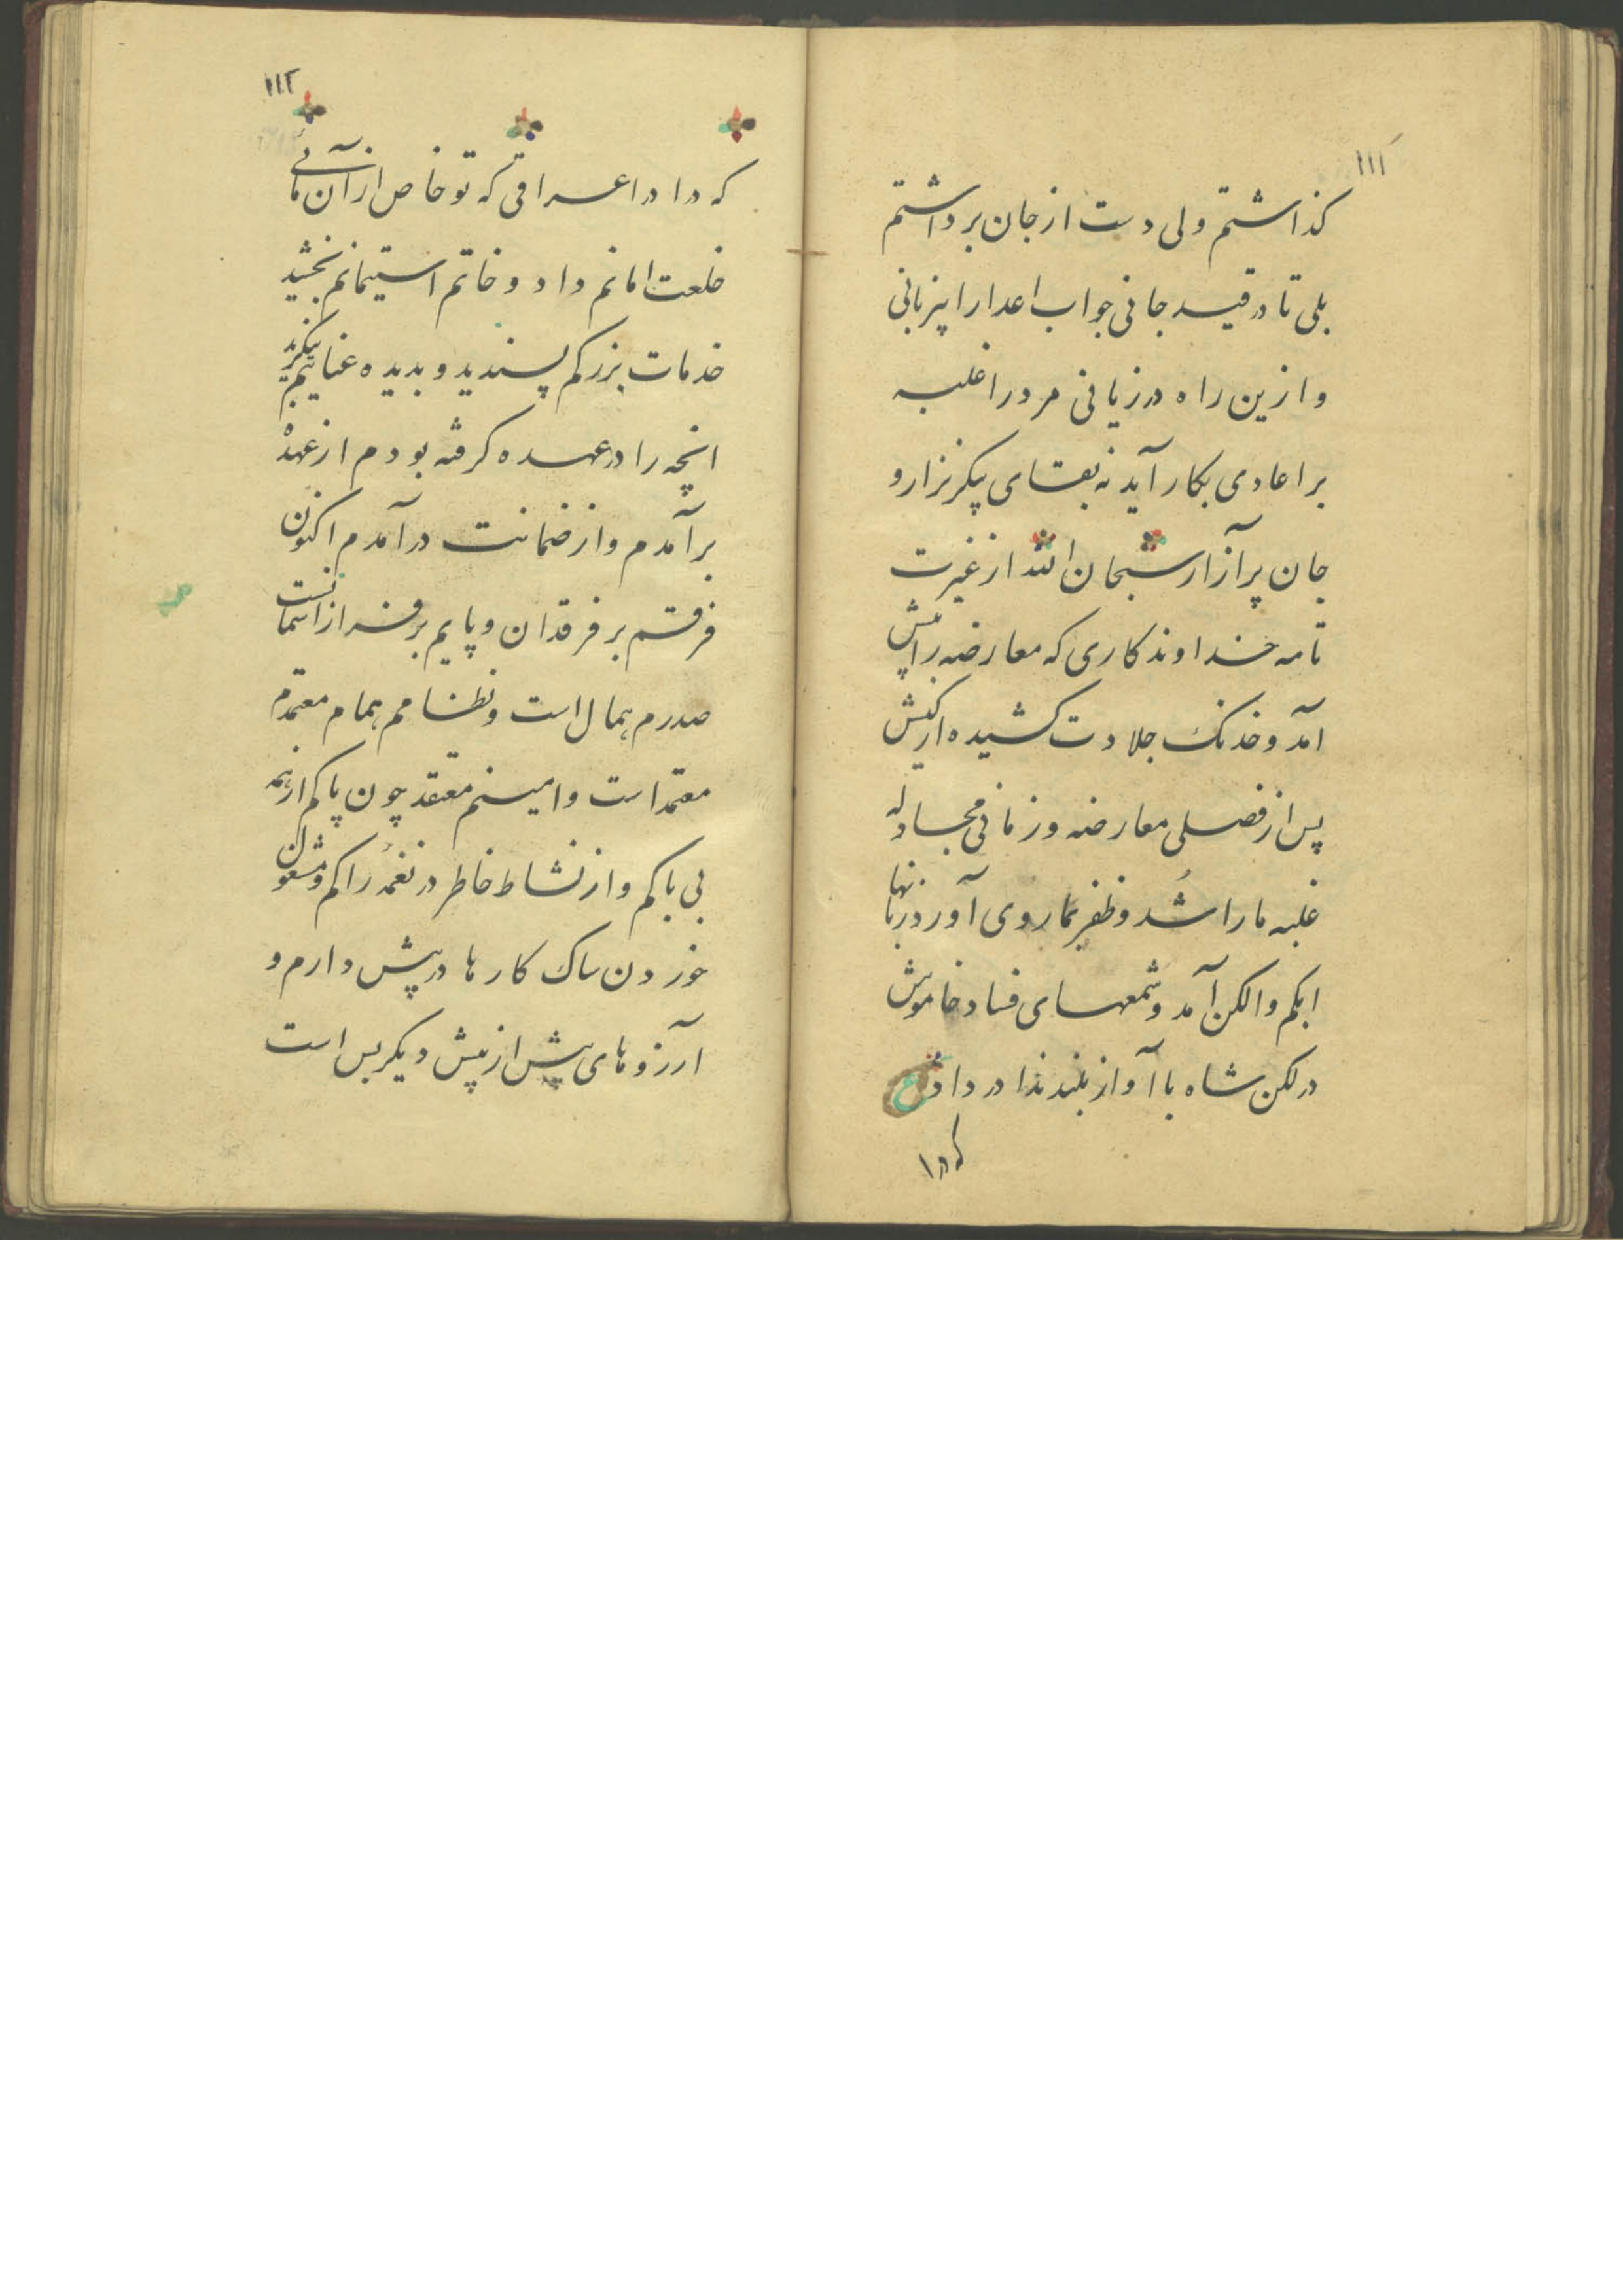 ۱۱۱
گذاشتم ولی دست از جان برداشتم
بلی تا در قید جانی جواب اعدا را بیزبانی
و ازین راه در زیانی مرد را غلبه
بر اعادی بکار آید نه بقای پیکر نزار و
جان پر آزار سبحان الله از غیرت
نامه خداوند کاری که معارضه را پیش
آمد و خدنک جلادت کشیده از کیش
پس از فصلی معارضه و زمانی مجادله
غلبه ما را شد و ظفر بما روی آورد زبانها
ابکم و الکن آمد و شمعهای فساد خاموش
در لکن شاه با آواز بلند ندا در داد ع
که دا
۱۱۲
که دارد اعرافی که تو خاص از آن مائی
خلعت امانم داد و خاتم استیمانم بخشید
خدمات بزرکم پسندید و بدیده عنایتم
انچه را در عهده کرفته بودم از عهده
برآمدم و از ضمانت درآمدم اکنون
فرقم بر فرقدان و پایم بر فراز آسمانست
صدرم همال است و نظامم همام معتمدم
معتمد است و امینم معتقد چون پاکم از همه
بی باکم و از نشاط خاطر در نغمه راکم و مشغول
خوردن ساک کارها در پیش دارم و
آرزوهای بیش از پیش دیکر بس است